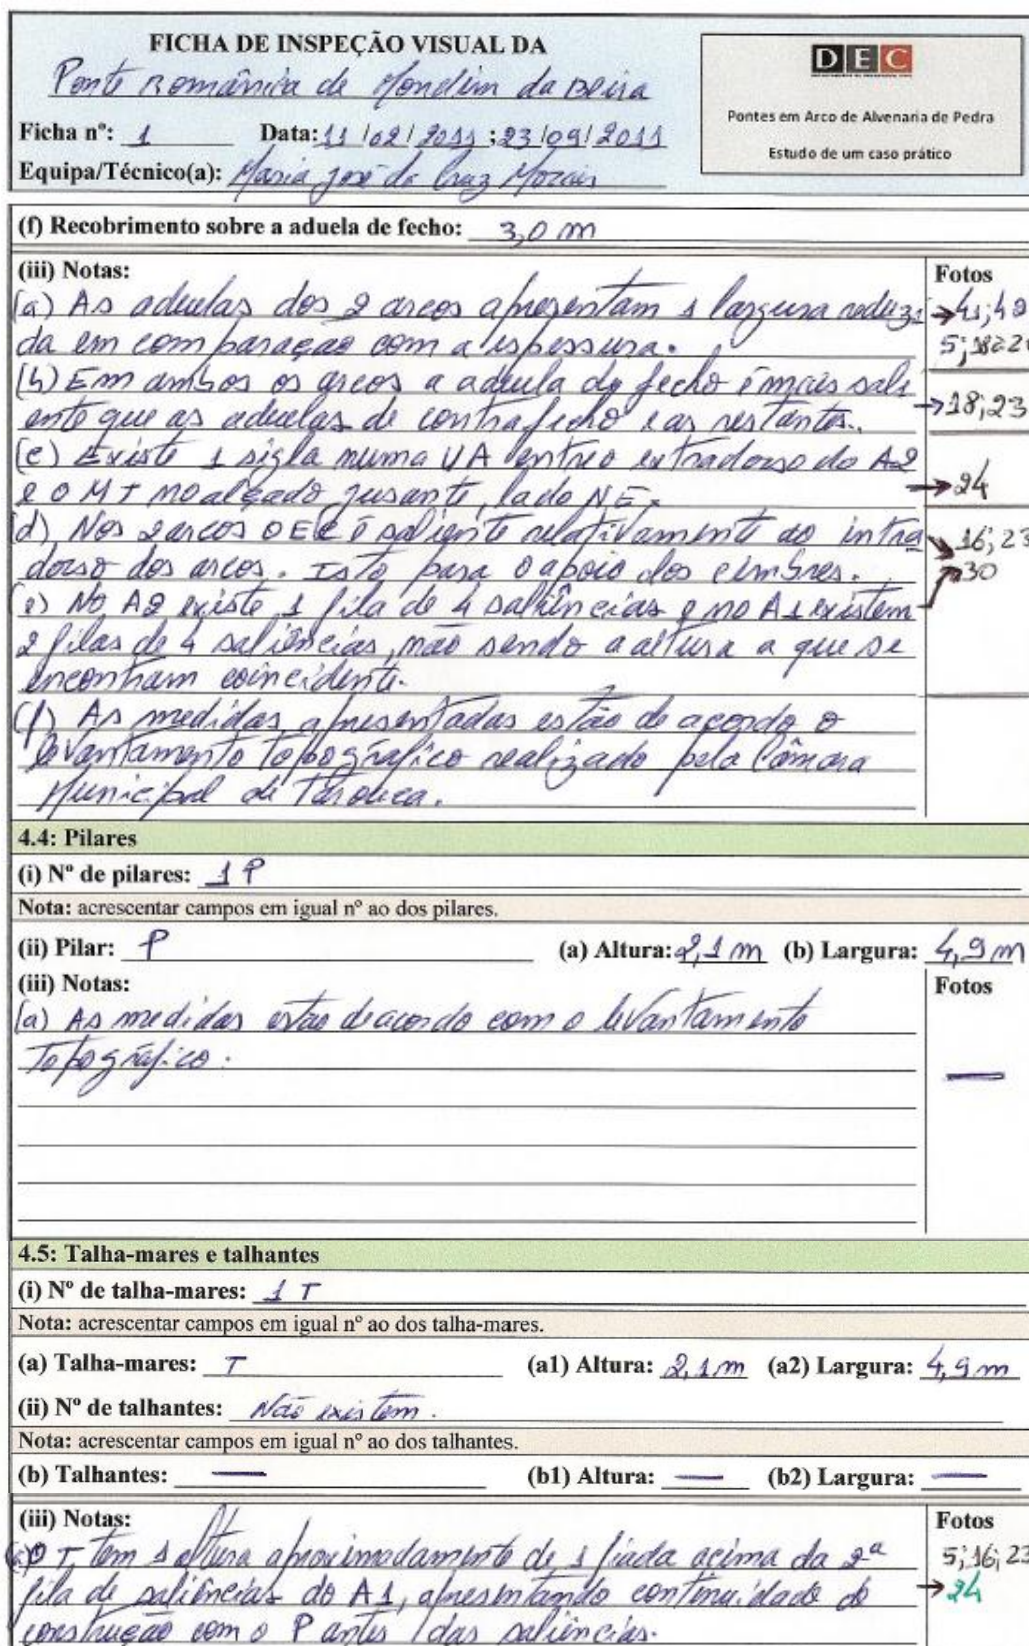 FICHA DE INSPEÇÃO VISUAL DA
Ponte Românica de Mondim da Beira
Ficha nº: 1 Data: 11/02/2011 ; 23/09/2011
Equipa/Técnico(a): Maria José da Cruz Morais
DEC
Pontes em Arco de Alvenaria de Pedra
Estudo de um caso prático
(f) Recobrimento sobre a aduela de fecho: 3,0 m
(iii) Notas:
Fotos
(a) As aduelas dos 2 arcos apresentam 1 largura reduzi
→41;42
da em comparação com a espessura.
5;18
(b) Em ambos os arcos a aduela de fecho é mais sali
ente que as aduelas de contrafecho e as restantes.
→18;23
(c) Existe 1 sigla numa UA entre o extradorso do A2
e o MT no alçado jusante, lado NE.
→24
(d) Nos 2 arcos o EC é saliente relativamente ao intra
→16;23
dorso dos arcos. Isto para o apoio dos cimbres.
30
(e) No A2 existe 1 fila de 4 saliências e no A1 existem
2 filas de 4 saliências, não sendo a altura a que se
encontram coincidente.
(f) As medidas apresentadas estão de acordo o
levantamento topográfico realizado pela Câmara
Municipal de Tarouca.
4.4: Pilares
(i) Nº de pilares: 1 P
Nota: acrescentar campos em igual nº ao dos pilares.
(ii) Pilar: P (a) Altura: 2,1 m (b) Largura: 4,9 m
(iii) Notas:
Fotos
(a) As medidas estão de acordo com o levantamento
topográfico.
—
4.5: Talha-mares e talhantes
(i) Nº de talha-mares: 1 T
Nota: acrescentar campos em igual nº ao dos talha-mares.
(a) Talha-mares: T (a1) Altura: 2,1 m (a2) Largura: 4,9 m
(ii) Nº de talhantes: Não existem.
Nota: acrescentar campos em igual nº ao dos talhantes.
(b) Talhantes: — (b1) Altura: — (b2) Largura: —
(iii) Notas:
Fotos
(a) O T tem 1 altura aproximadamente de 1 fiada acima da 2ª
5;16;23
fila de saliências do A1, apresentando continuidade de
→24
construção com o P antes das saliências.